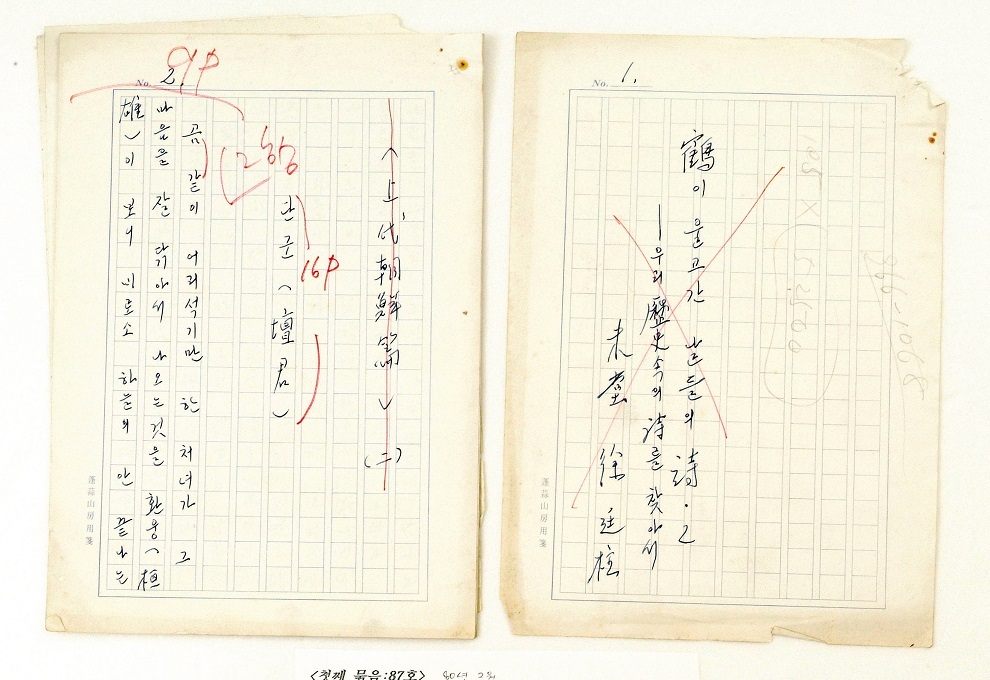 No. 1.
鶴이 울고간 날들의 詩·2
―우리 歷史속의 詩를 찾아서
未堂 徐廷柱
蓬蒜山房用箋
No. 2.
<上代朝鮮篇> (二)
단군(壇君)
16P
곰같이 어리석기만 한 처녀가 그
마음을 잘 닦아서 나오는것을 환웅(桓
雄)이 보니 비로소 하늘의 안 끝나는
蓬蒜山房用箋
<첫째 묶음:87호>